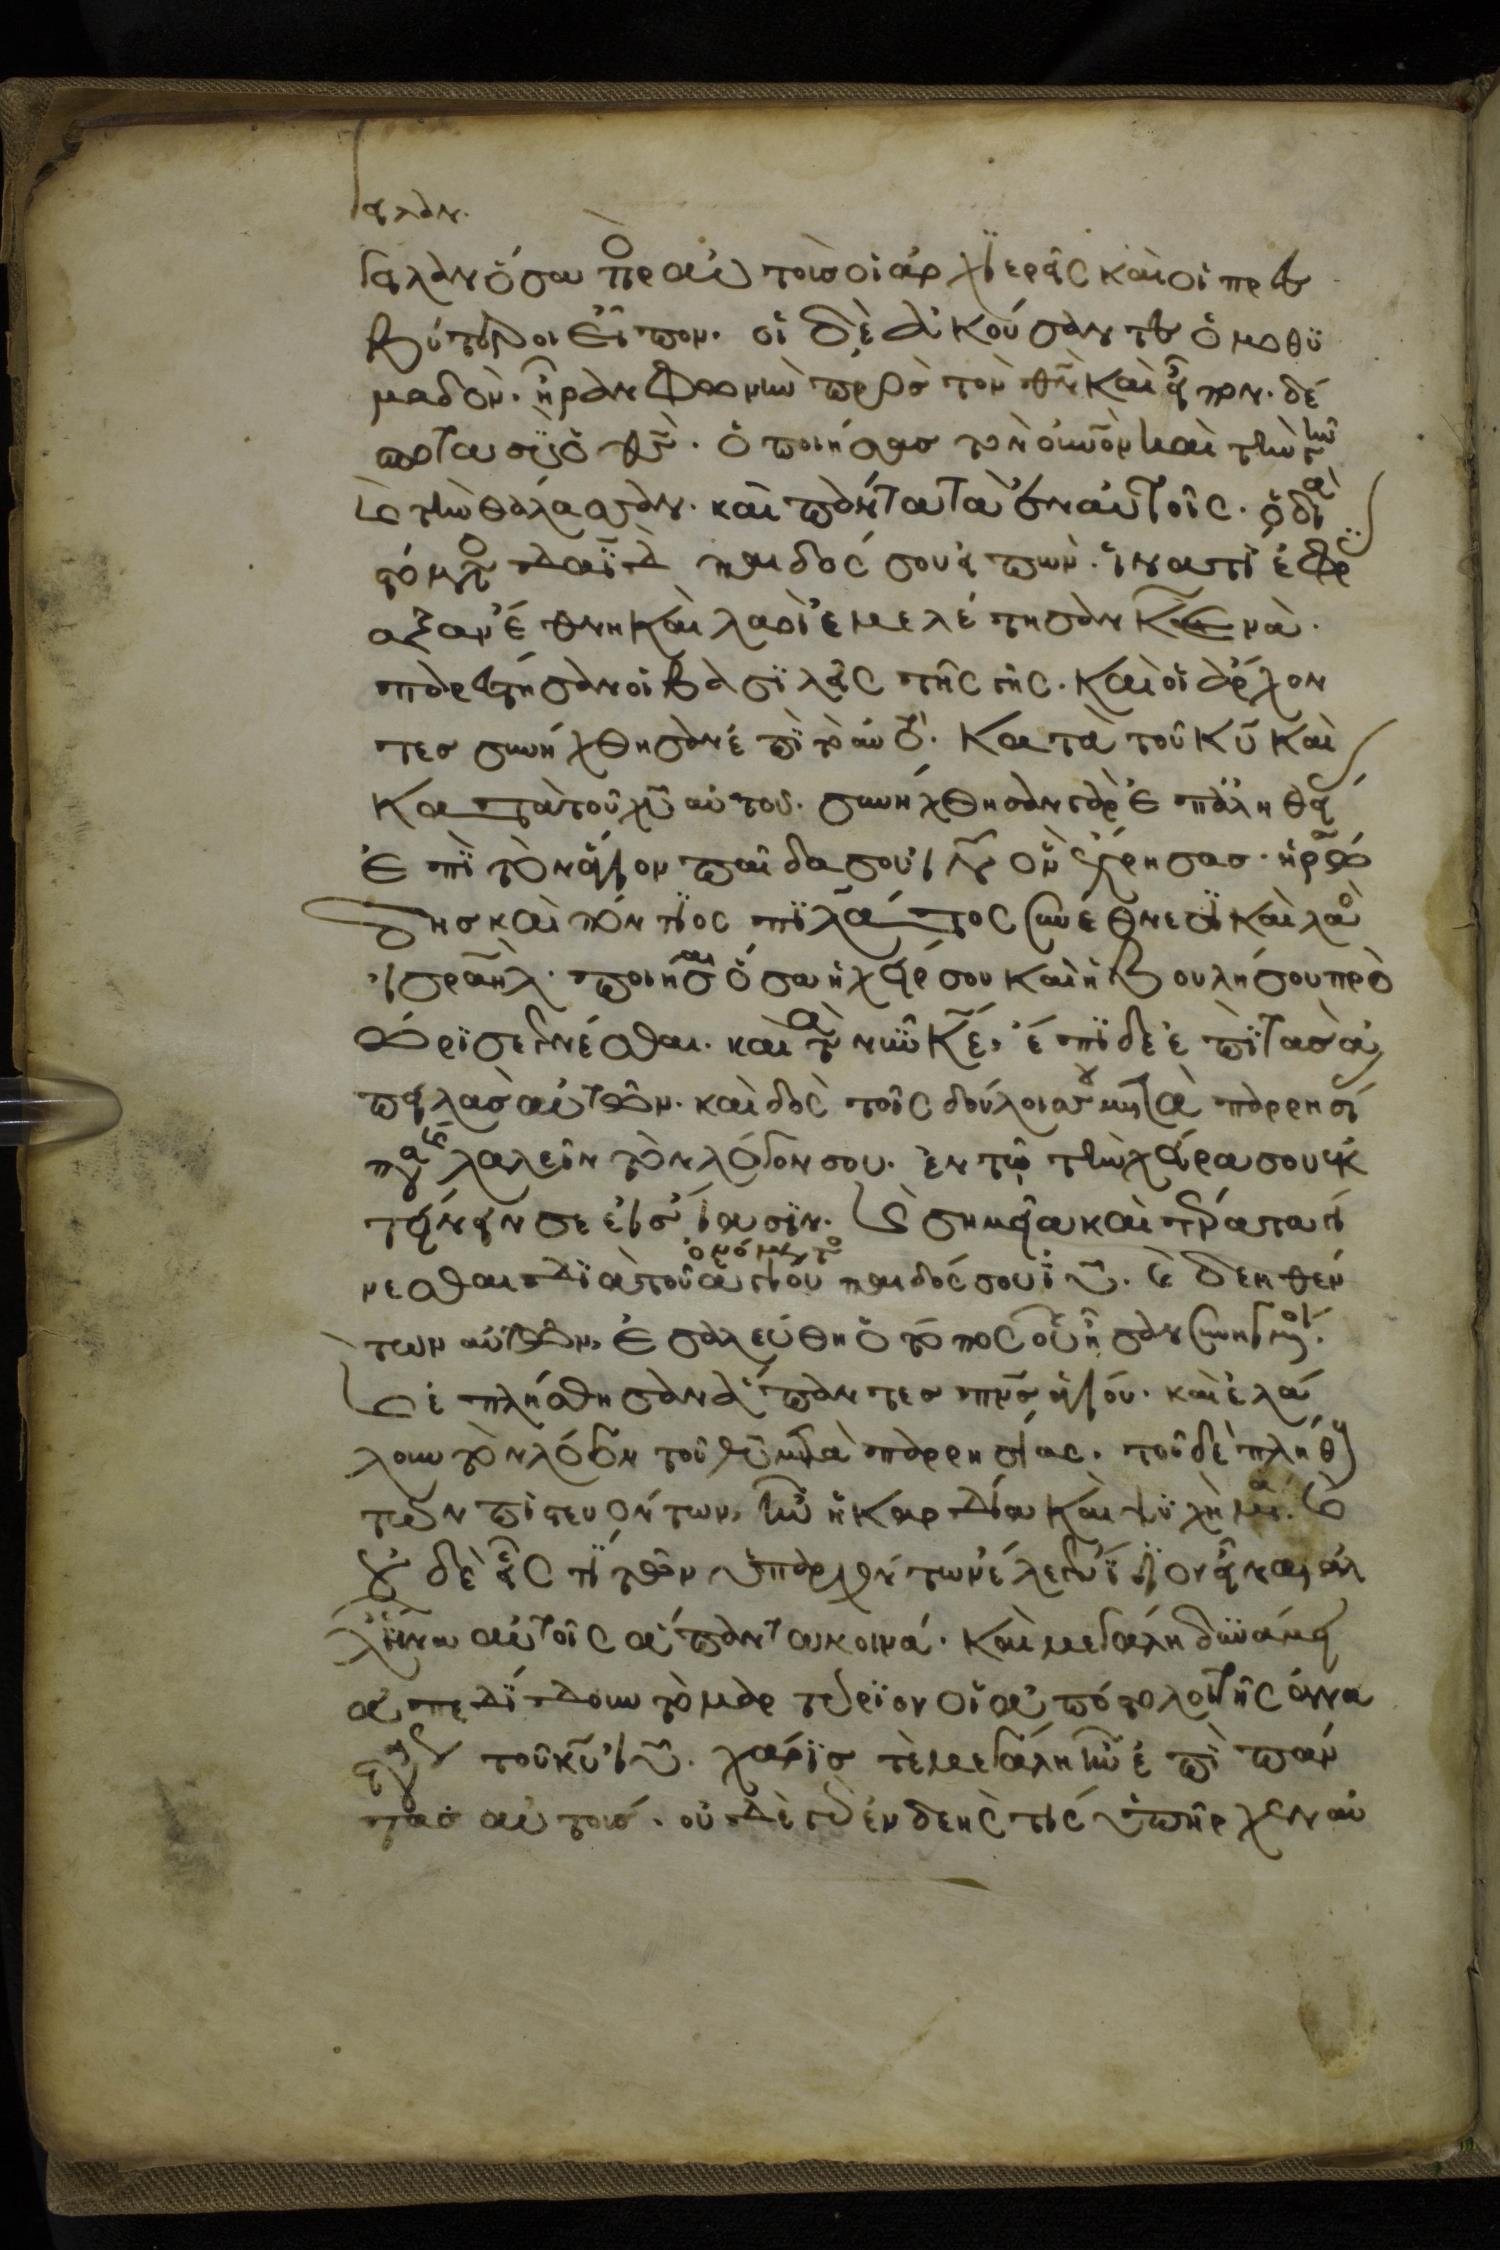 γειλαν
γειλαν ὅσα πρὸς αὐτοὺς οἱ ἀρχϊερεῖς καὶ οἱ πρεσ
βύτεροι εἶπον. οἱ δὲ ἀκούσαντες ὁμοθϋ
μαδὸν. ἦραν φωνὴν πρὸς τὸν θν καὶ εἶπον. δέ
σποτα σὺ ὁ θς. ὁ ποιήσας τὸν οὐνον καὶ τὴν γῆν
καὶ τὴν θάλασσαν. καὶ πάντα τὰ ἐν αὐτοῖς. ὁ διὰ
στόματος δαϊδ παιδός σου εἰπών. ἵνα τί ἐφρύ
αξαν ἔθνη καὶ λαοὶ ἐμελέτησαν κενά.
παρέστησαν οἱ βασϊλεῖς τῆς γῆς. καὶ οἱ ἄρχον
τες συνήχθησαν ἐπῒ τὸ αὐτό. κατὰ τοῦ κυ καὶ
κατὰ τοῦ χυ αὐτοῦ. συνήχθησαν γὰρ ἐπ ἀληθεί
ἐπῒ τὸν ἅγιον παῖδα σου ιν ὃν ἔχρησας. ἡρώ
δης καὶ πόντϊος πϊλάτος σὺν ἔθνεσϊ καὶ λαοῖ
ισραηλ. ποιῆσαι ὅσα ἡ χείρ σου καὶ ἡ βουλή σου προ
ώρϊσε γενέσθαι. καὶ τὰ νῦν κε, ἔπϊδε ἐπῒ τὰς ἀ
πειλὰς αὐτῶν. καὶ δὸς τοῖς δούλοις σου μετὰ παρρησί
ας πάσης λαλεῖν τὸν λόγον σου. ἐν τῷ τὴν χεῖρα σου ἐκ
τείνειν σε εἰς ἴασϊν. καὶ σημεῖα καὶ τέρατα γί
νεσθαι δϊὰ τοῦ ὀνόματος τοῦ ἁγίου παιδός σου ϊυ. καὶ δεηθέν
των αὐτῶν, ἐσαλεύθη ὁ τόπος οὗ ἦσαν συνηγμένοι.
καὶ ἐπλήσθησαν ἅπαντες πνς ἁγίου. καὶ ἐλά
λουν τὸν λόγον τοῦ θυ μετὰ παρρησίας. τοῦ δὲ πλήθους
τῶν πιστευόντων, ἦν ἡ καρδία καὶ ψϋχὴ μία. καὶ
οὐδὲ εἷς τϊ τῶν ὑπαρχόντων ἔλεγεν ἴδϊον εἶναι, ἀλ
λ ἦν αὐτοῖς ἅπαντα κοινά. καὶ μεγάλη δϋνάμει
ἀπεδϊδουν τὸ μαρτύρϊον οἱ ἀπόστολοι τῆς ἀνα
στάσεως τοῦ κυ ιυ. χάρϊς τὲ μεγάλη ἦν ἐπῒ πάν
τας αὐτούς. οὐδὲ γὰρ ἐνδεής τίς ὑπῆρχεν ἐν αὐ